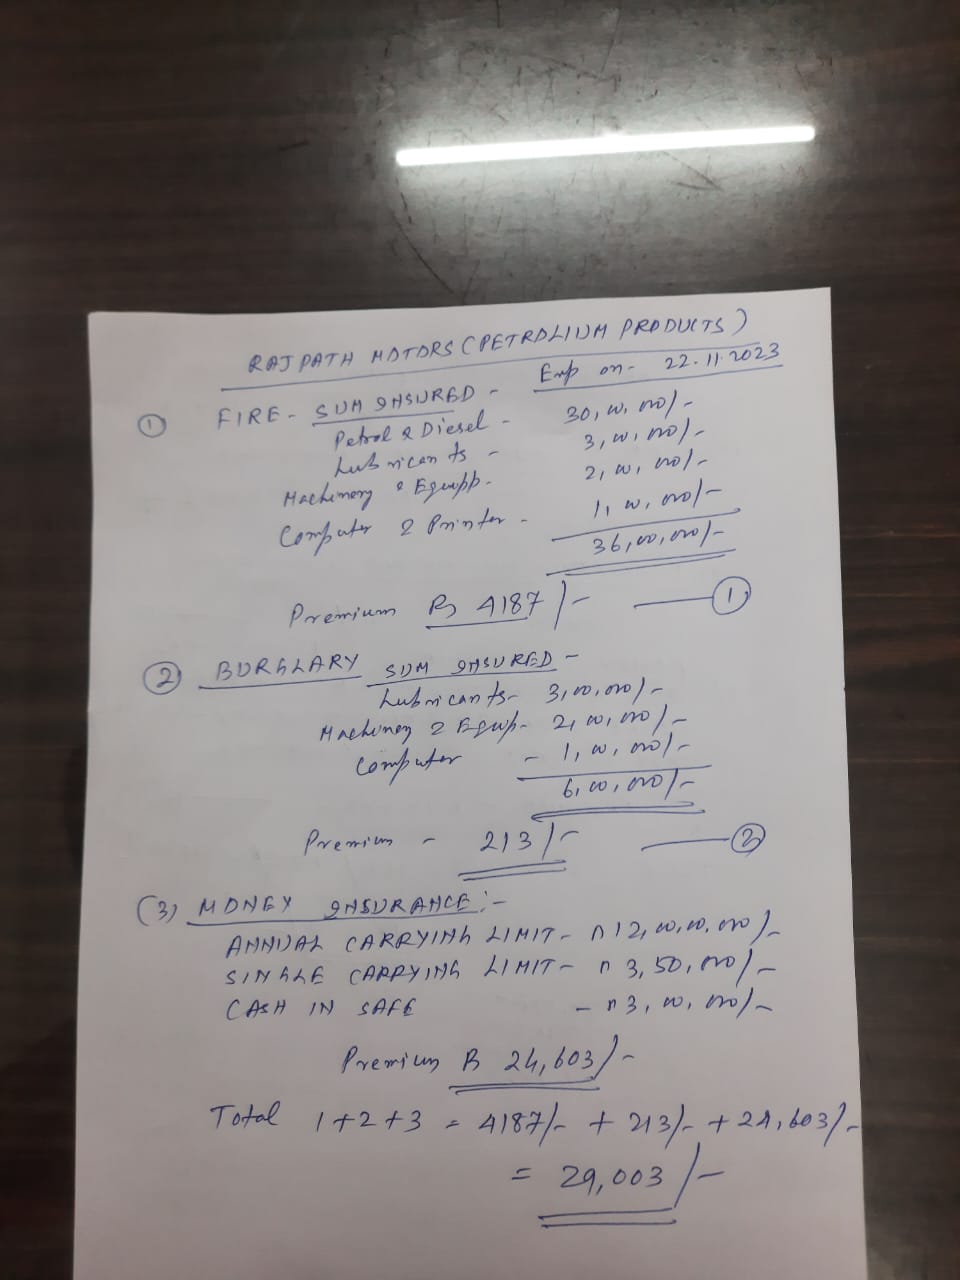 RAJPATH MOTORS (PETROLIUM PRODUCTS)
Exp on - 22.11.2023
① FIRE - SUM INSURED -
Petrol & Diesel - 30,00,000/-
Lubricants - 3,00,000/-
Machinery & Equipp. 2,00,000/-
Computer & Printer - 1,00,000/-
36,00,000/-
Premium Rs 4187/- ①
② BURGLARY SUM INSURED -
Lubricants - 3,00,000/-
Machinery & Equip - 2,00,000/-
Computer - 1,00,000/-
6,00,000/-
Premium - 213/- ②
(3) MONEY INSURANCE :-
ANNUAL CARRYING LIMIT - n 12,00,00,000/-
SINGLE CARRYING LIMIT - n 3,50,000/-
CASH IN SAFE - n 3,00,000/-
Premium Rs 24,603/-
Total 1+2+3 = 4187/- + 213/- + 24,603/-
= 29,003/-